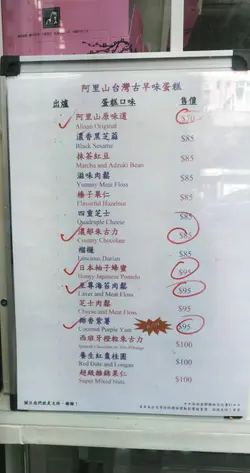 阿里山台灣古早味蛋糕
出爐 蛋糕口味 售價
阿里山原味道 $70
Alisan Original
濃香黑芝麻 $85
Black Sesame
抹茶紅豆 $85
Matcha and Adzuki Bean
滋味肉鬆 $85
Yummy Meat Floss
榛子果仁 $85
Flavorful Hazelnut
四重芝士 $85
Quadruple Cheese
濃郁朱古力 $85
Creamy Chocolate
榴槤 $85
Luscious Durian
日本柚子蜂蜜 $95
Honey Japanese Pomelo
至尊海苔肉鬆 $95
Laver and Meat Floss
芝士肉鬆 $95
Cheese and Meat Floss
椰香紫薯 $95
Coconut Purple Yam
西班牙橙粒朱古力 $100
養生紅棗桂圓 $100
Red Date and Longan
超級雜錦果仁 $100
Super Mixed Nuts